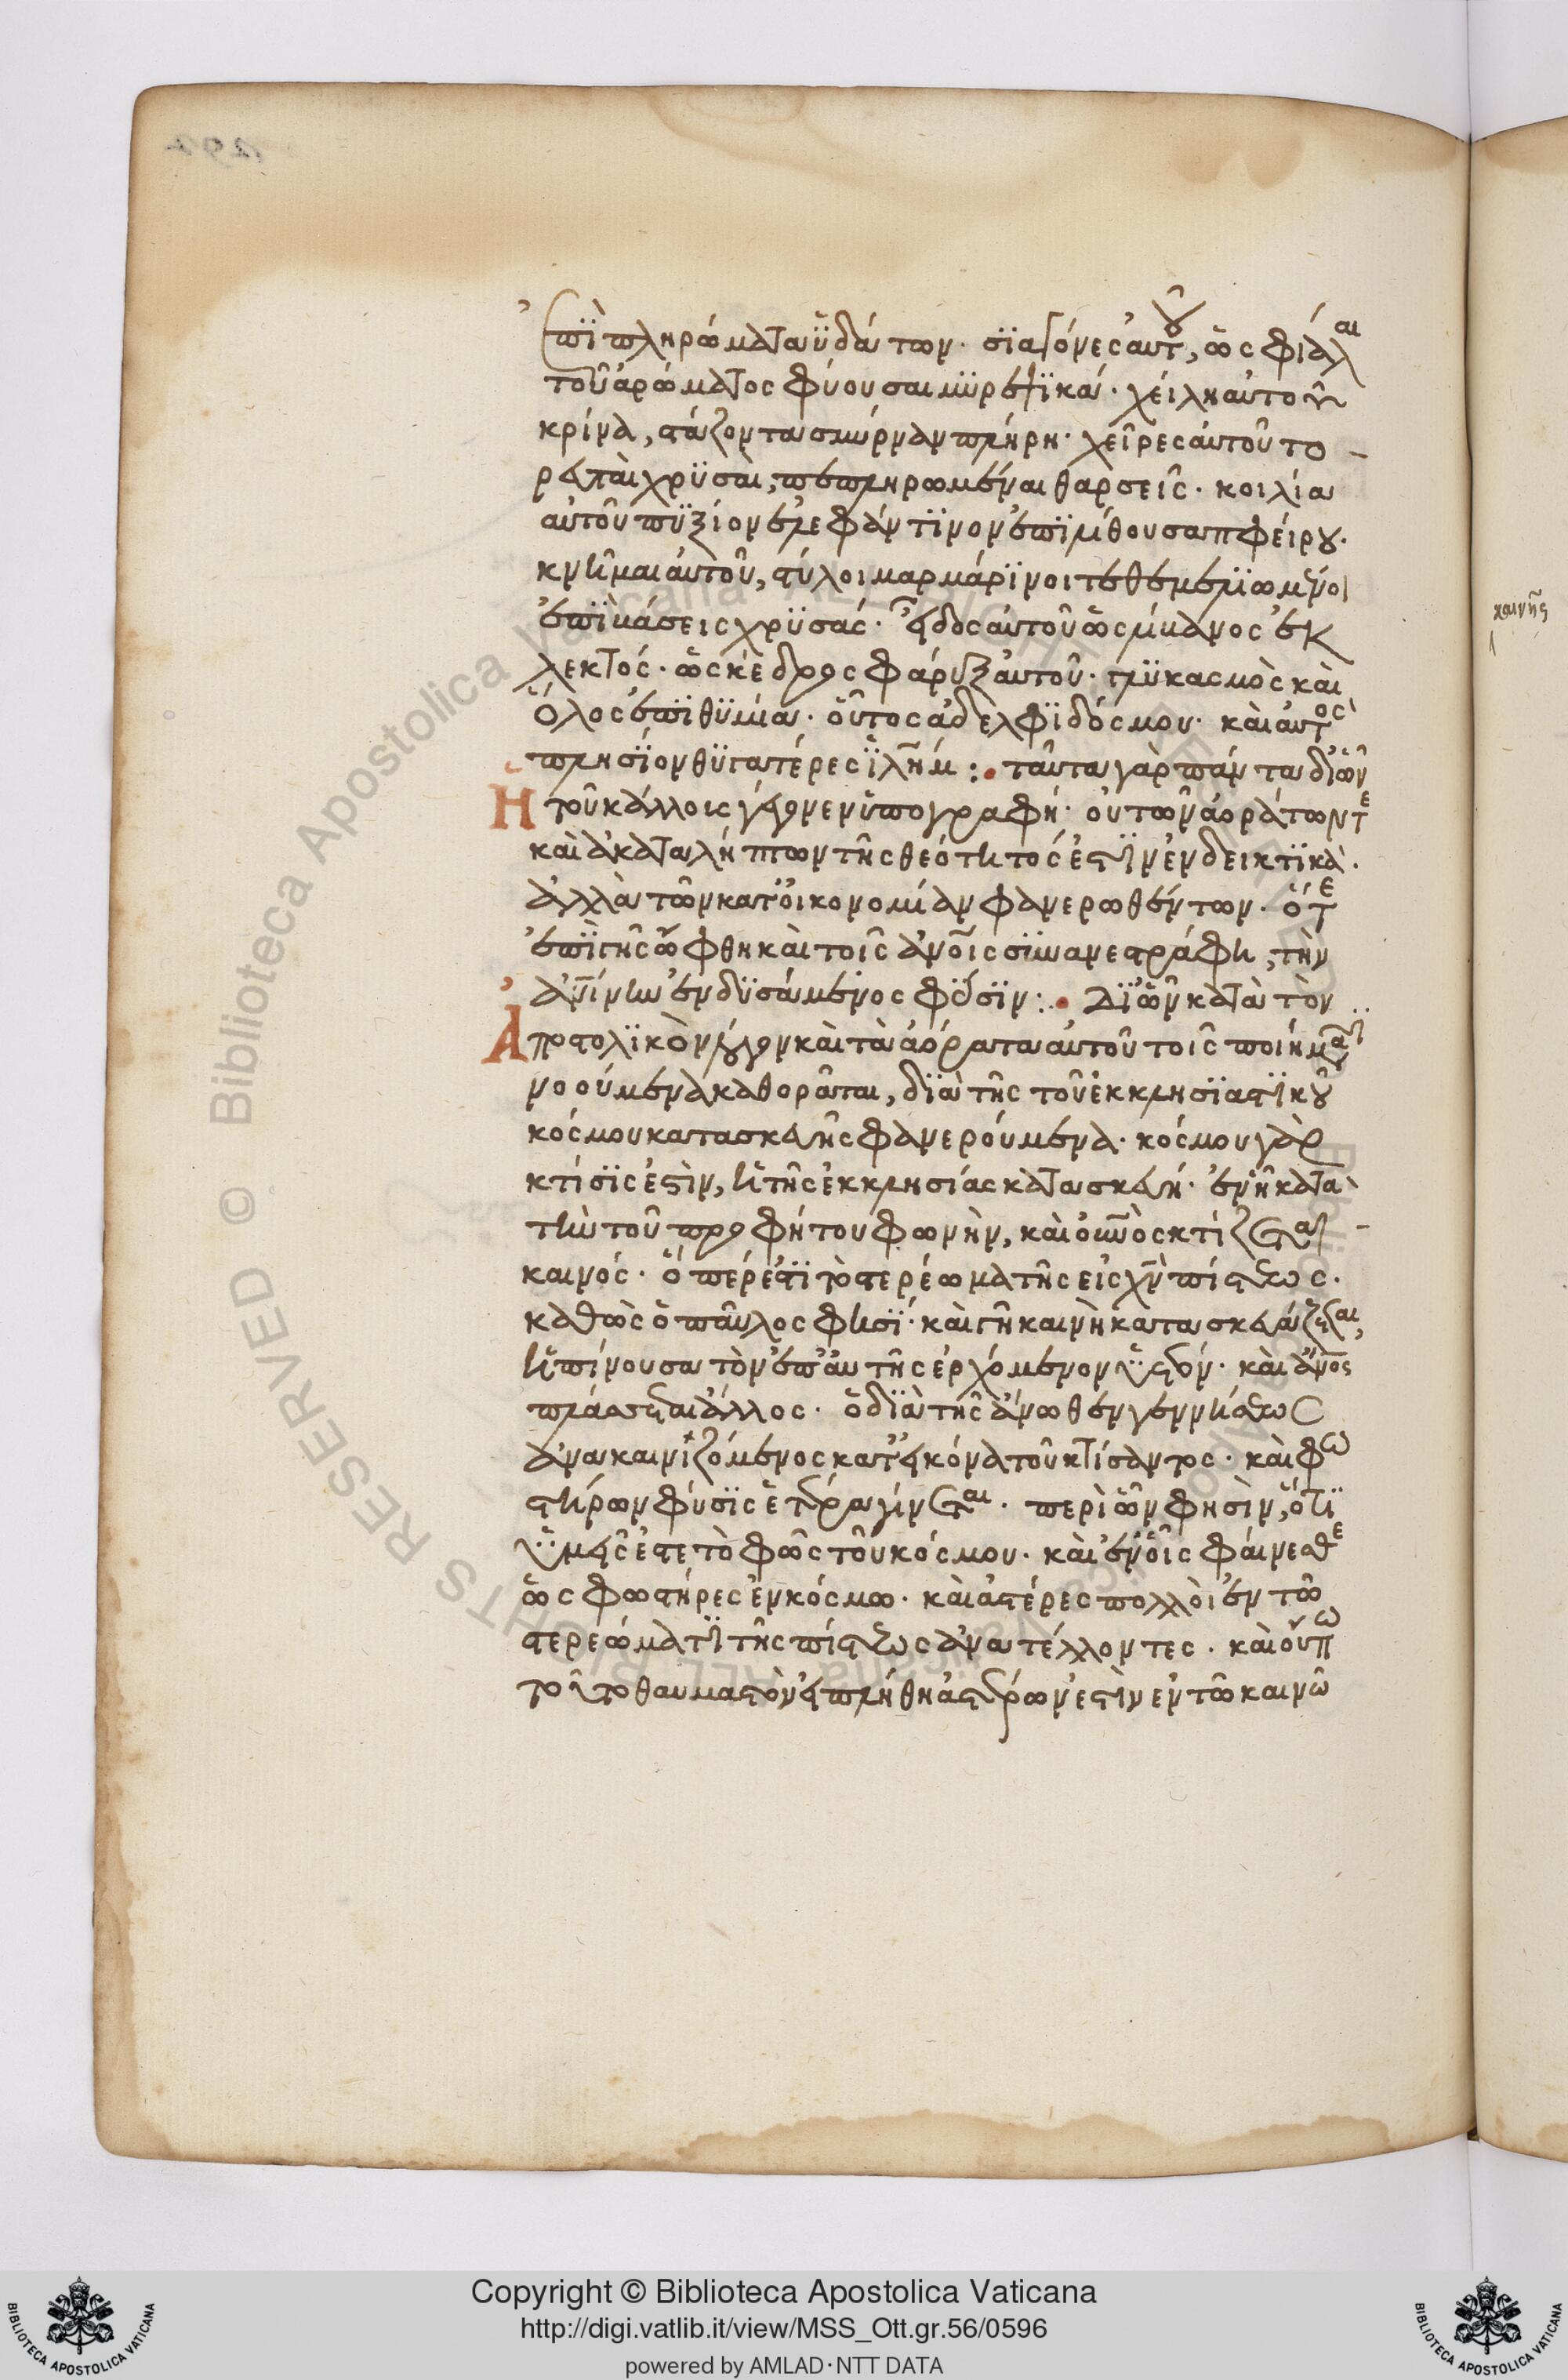 ἐπὶ πληρώματα ὑδάτων· σιαγόνες αὐτοῦ, ὡς φιάλαι
τοῦ ἀρώματος φύουσαι μυρεψικά· χείλη αὐτοῦ
κρίνα, στάζοντα σμύρναν πλήρη· χεῖρες αὐτοῦ το
ρευταὶ χρυσαῖ, πεπληρωμέναι θαρσεῖς· κοιλία
αὐτοῦ πυξίον ἐλεφάντινον ἐπὶ λίθου σαπφείρου·
κνῆμαι αὐτοῦ, στύλοι μαρμάρινοι τεθεμελιωμένοι
ἐπὶ βάσεις χρυσάς· εἶδος αὐτοῦ ὡς λίβανος ἐκ
λεκτός· ὡς κέδρος φάρυξ αὐτοῦ· γλυκασμὸς καὶ
ὅλος ἐπιθυμία· οὗτος ἀδελφιδός μου· καὶ αὐτὸς
πλησίον θυγατέρες ἰλῆμ :• ταῦτα γὰρ πάντα δι' ὧν
Ἡ τοῦ κάλλους γέγονεν ὑπογραφή· οὐ τῶν ἀοράτων τε
καὶ ἀκαταλήπτων τῆς θεότητός ἐστιν ἐνδεικτικά·
ἀλλὰ τῶν κατ' οἰκονομίαν φανερωθέντων· ὅτε
ἐπὶ γῆς ὤφθη καὶ τοῖς ἀνοῖς συνανεστράφη, τὴν
ἀνίνην ἐνδυσάμενος φύσιν :• Δι' ὧν κατὰ τὸν
Ἀποστολικὸν λόγον καὶ τὰ ἀόρατα αὐτοῦ τοῖς ποιήμασι
νοούμενα καθορᾶται, διὰ τῆς τοῦ ἐκκλησιαστικοῦ
κόσμου κατασκευῆς φανερούμενα· κόσμου γὰρ
κτίσις ἐστὶν, ἡ τῆς ἐκκλησίας κατασκευή· ἐν ᾗ κατὰ
τὴν τοῦ προφήτου φωνὴν, καὶ οὐνὸς κτίζεται
καινός· ὅπερ ἐστὶ τὸ στερέωμα τῆς εἰς χν πίστεως·
καθὼς ὁ παῦλος φησί· καὶ γῆ καινὴ κατασκευάζεται,
ἡ πίνουσα τὸν ἐπ' αὐτῆς ἐρχόμενον ὑετόν· καὶ ἄνος
πλάσσεται ἄλλος· ὁ διὰ τῆς ἄνωθεν γεννήσεως
ἀνακαινιζόμενος κατ' εἰκόνα τοῦ κτίσαντος· καὶ φω
στήρων φύσις ἑτέρα γίνεται· περὶ ὧν φησὶν, ὅτι
ὑμεῖς ἐστε τὸ φῶς τοῦ κόσμου· καὶ ἐν οἷς φαίνεσθε
ὡς φωστῆρες ἐν κόσμω· καὶ ἀστέρες πολλοὶ ἐν τῶ
στερεώματι τῆς πίστεως ἀνατέλλοντες· καὶ οὔπω
τοῦτο θαυμαστὸν εἰ πλήθη ἀστέρων ἐστὶν ἐν τῶ καινῶ
καινῆς
Copyright © Biblioteca Apostolica Vaticana
http://digi.vatlib.it/view/MSS_Ott.gr.56/0596
powered by AMLAD·NTT DATA